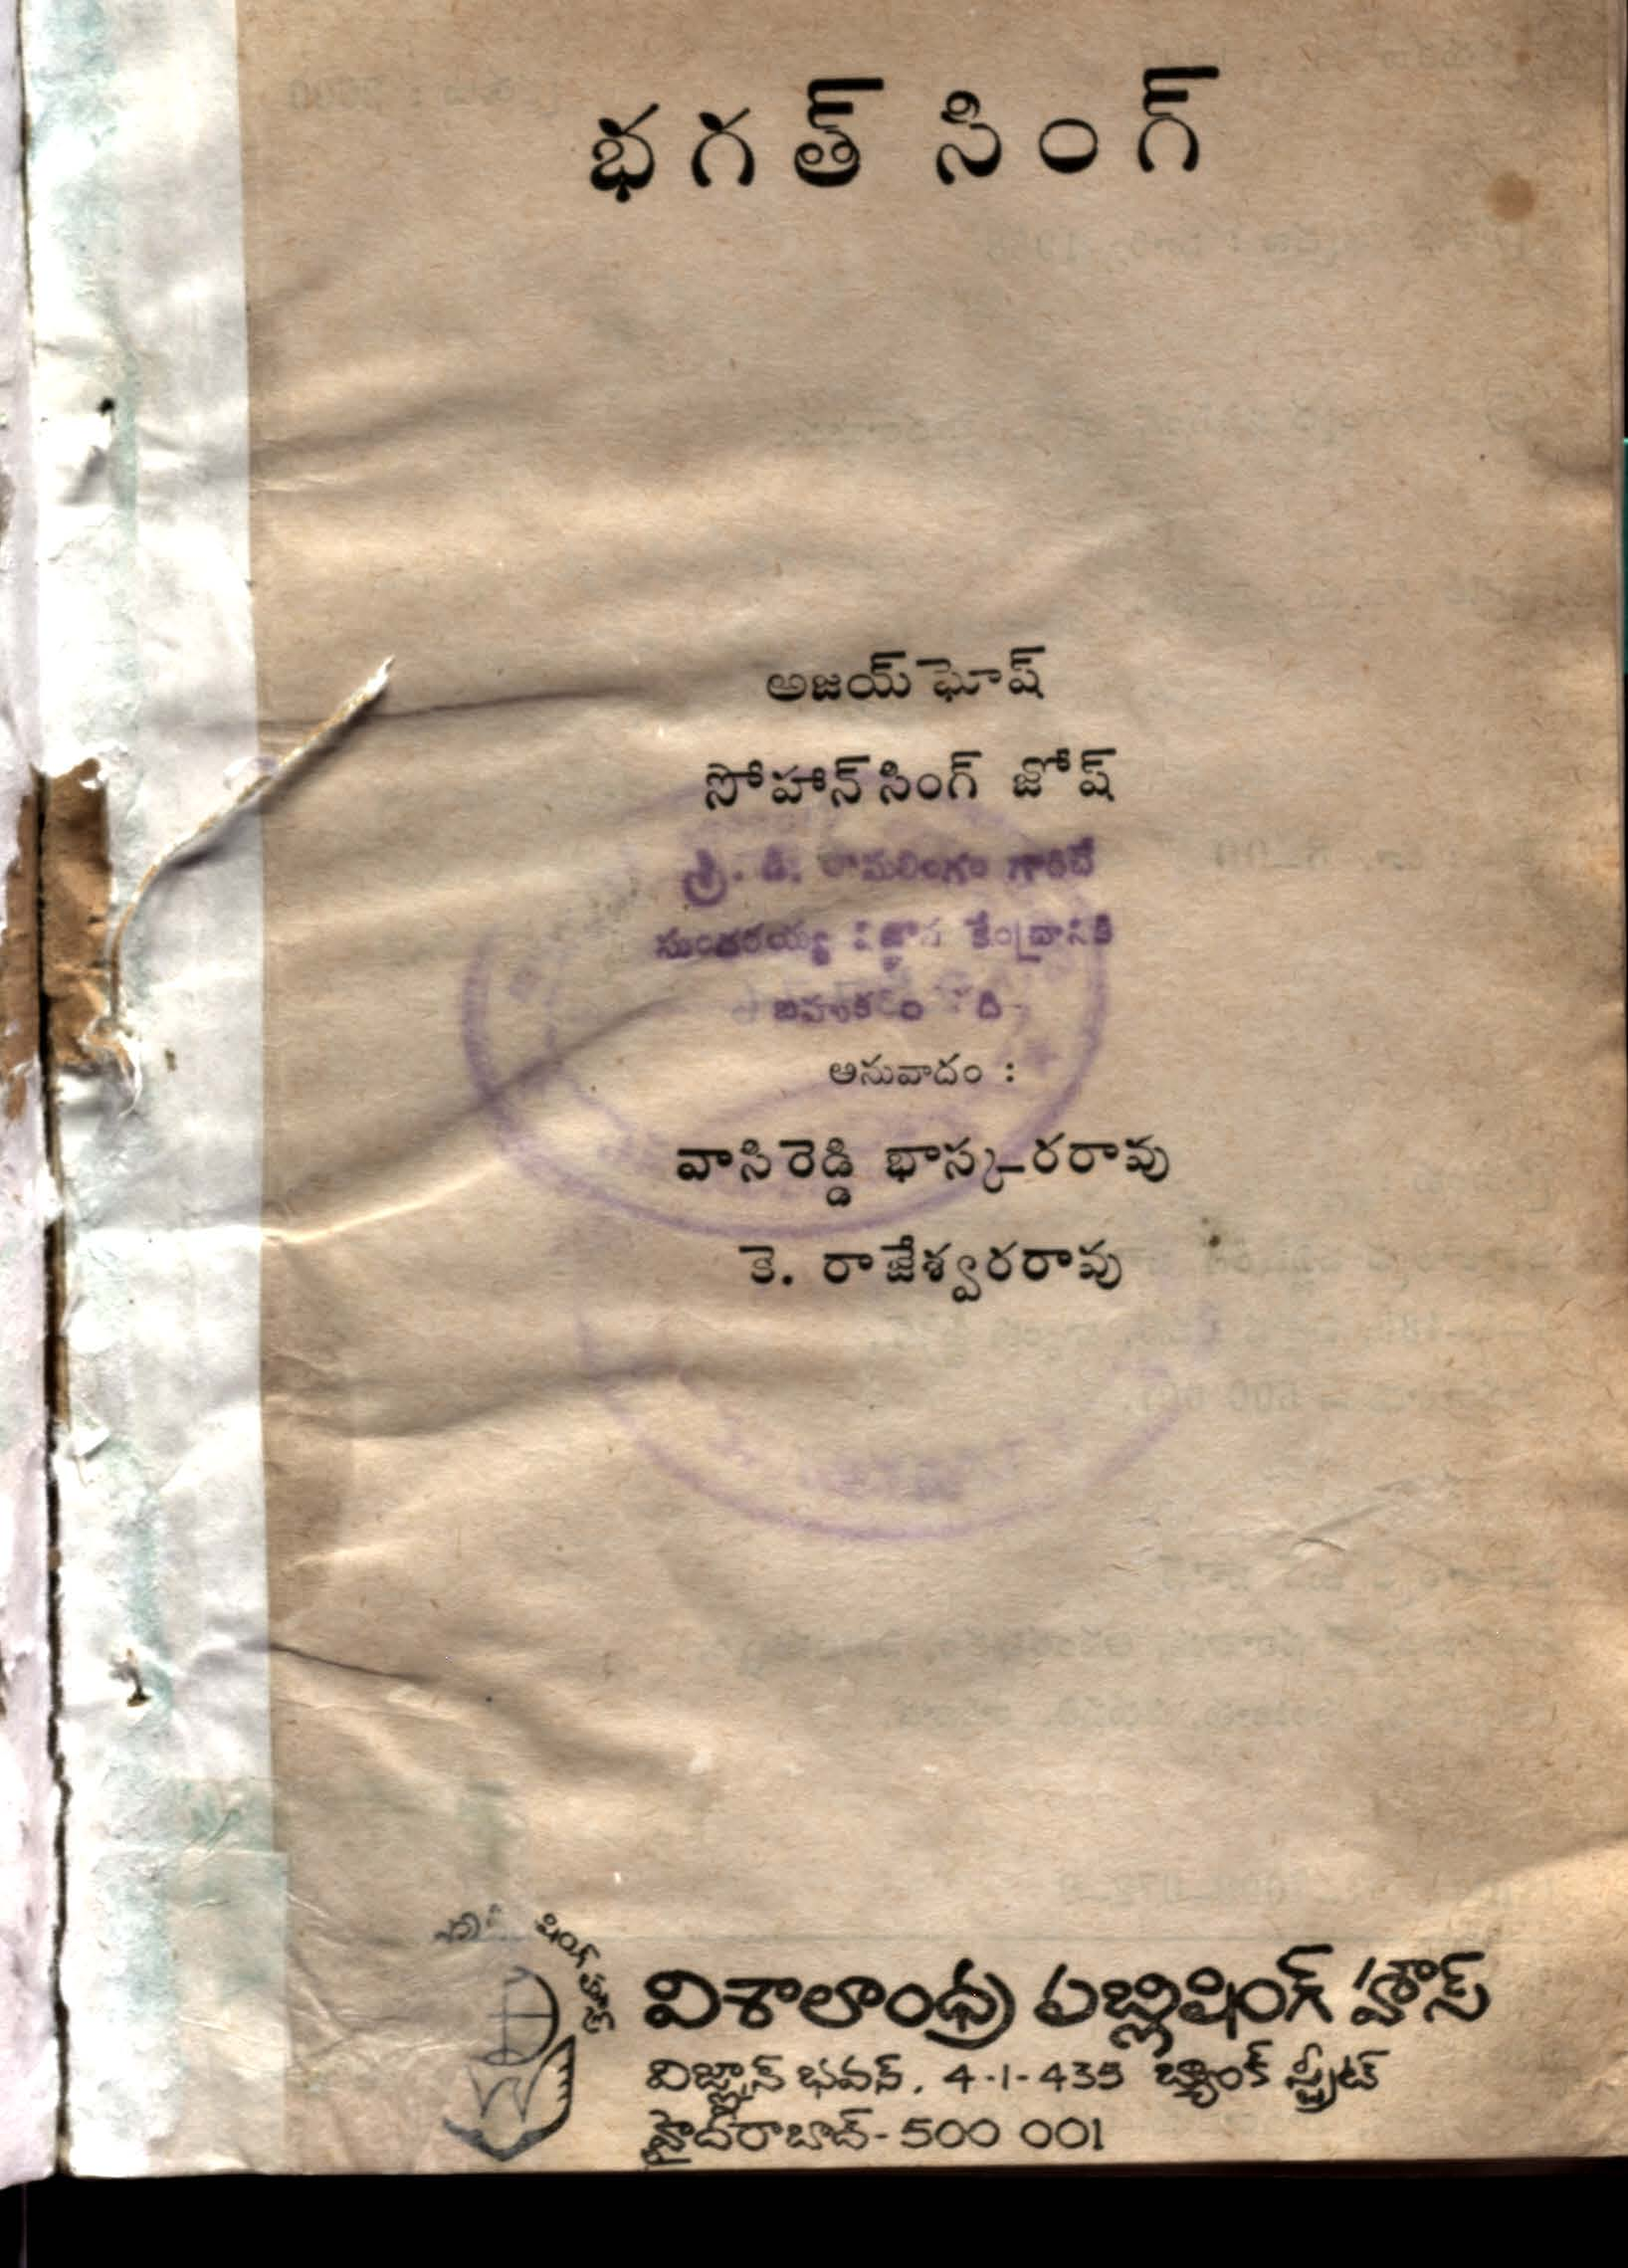 భగత్ సింగ్
అజయ్ ఘోష్
సోహాన్ సింగ్ జోష్
శ్రీ. డి. రామలింగం గారిచే
సుందరయ్య విజ్ఞాన కేంద్రానికి
బహుకరం
అనువాదం :
వాసిరెడ్డి భాస్కరరావు
కె. రాజేశ్వరరావు
షింగ్ హౌస్
విశాలాంధ్ర పబ్లిషింగ్ హౌస్
విజ్ఞాన్ భవన్, 4-1-435 బ్యాంక్ స్ట్రీట్
హైదరాబాద్-500 001